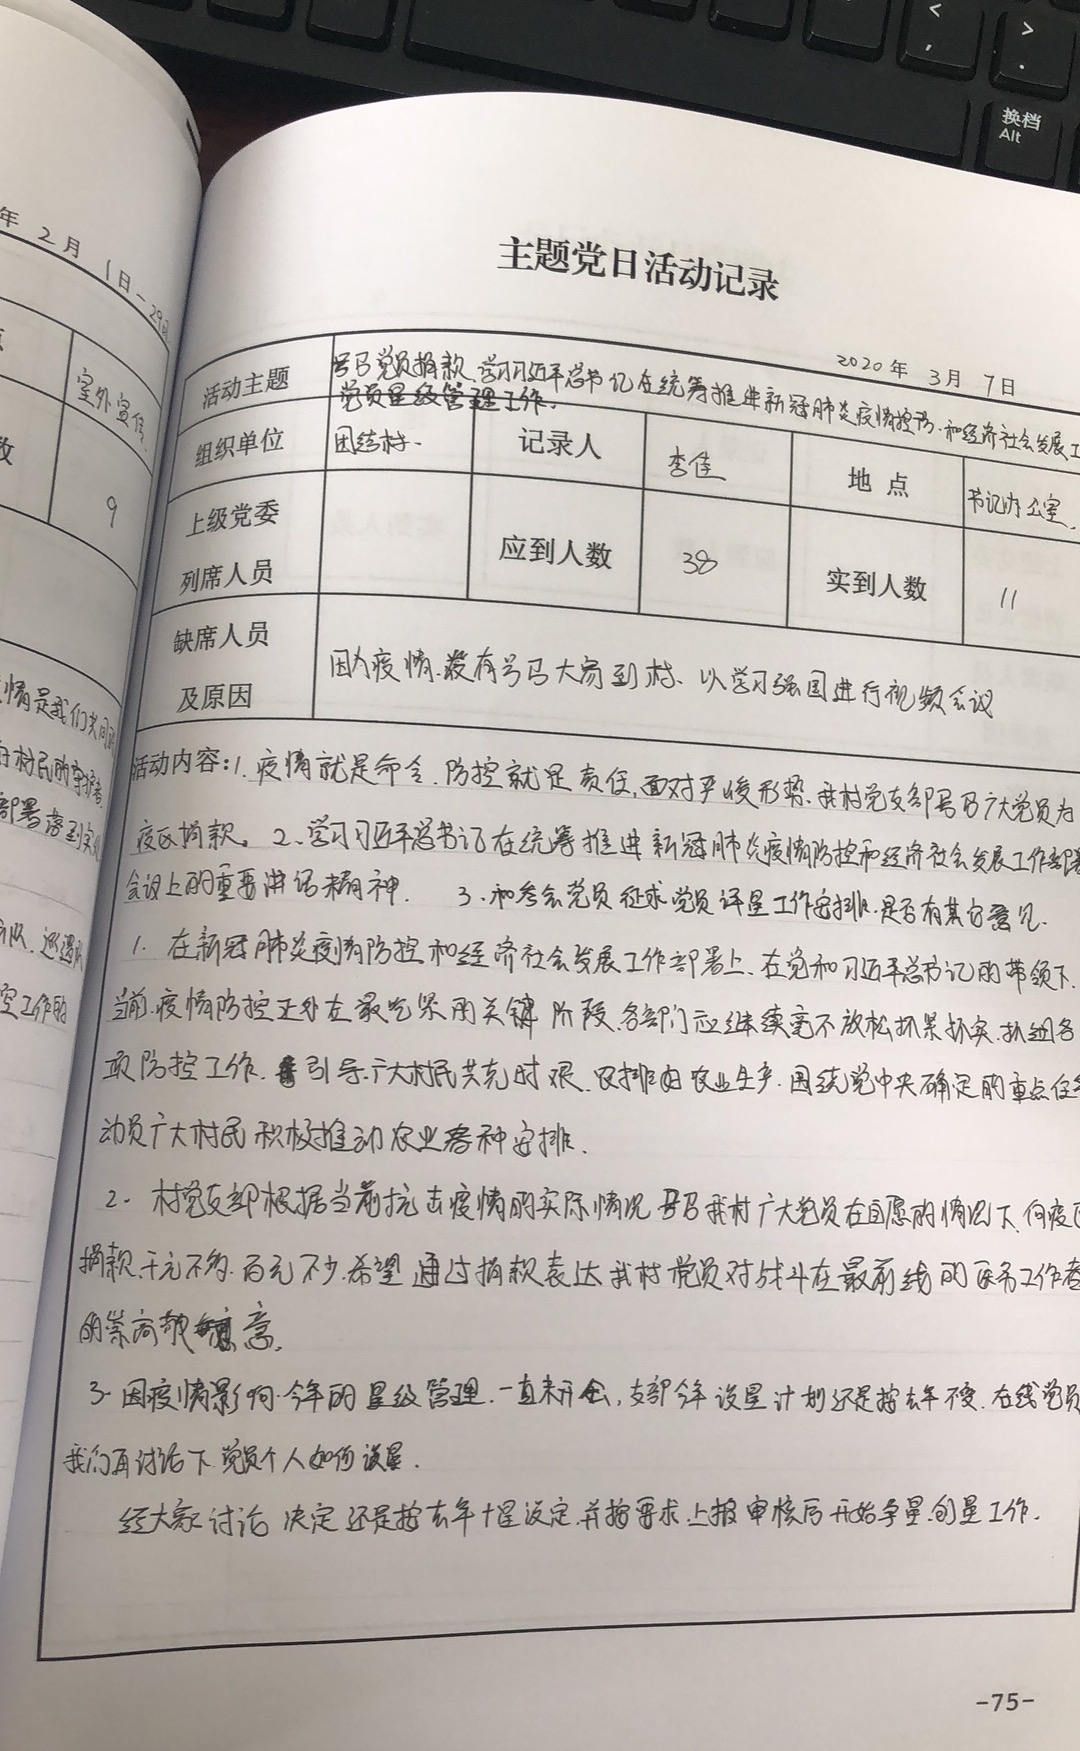 换档
Alt
年 2 月 1日-29日
室外宣传
数
9
情是我们共同的
村民的守护者
部署落到实
空工作的
主题党日活动记录
2020 年 3 月 7 日
活动主题 号马党员捐款、学习习近平总书记在统筹推进新冠肺炎疫情控防、和经济社会发展工
党员星级管理工作.
组织单位 团结村. 记录人 李佳 地点 书记办公室.
上级党委
列席人员 应到人数 38 实到人数 11
缺席人员
及原因 因为疫情.没有号马大家到村、以学习强国进行视频会议
活动内容:1. 疫情就是命令.防控就是责任,面对严峻形势.我村党支部号马广大党员为
疫区捐款。 2、学习习近平总书记在统筹推进新冠肺炎疫情防控和经济社会发展工作部署
会议上的重要讲话精神. 3、和参会党员征求党员评星工作安排.是否有其它意见.
1. 在新冠肺炎疫情防控和经济社会发展工作部署上、在党和习近平总书记的带领下.
当前.疫情防控正处在最吃紧的关键阶段.各部门应继续毫不放松抓紧抓实.抓细各
项防控工作. 引导广大村民共克时艰、安排好农业生产.围绕党中央确定的重点任务
动员广大村民积极推动农业春种安排.
2. 村党支部根据当前抗击疫情的实际情况号马我村广大党员在自愿的情况下.向疫区
捐款.千元不多.百元不少.希望通过捐款表达我村党员对战斗在最前线的医务工作者
的崇高敬意.
3. 因疫情影响.今年的星级管理.一直未开会,支部今年设星计划还是按去年不变.在线党员
我们再讨论下.党员个人如何设星.
经大家讨论 决定还是按去年十星设定.并按要求.上报审核后开始争星.创星工作.
-75-